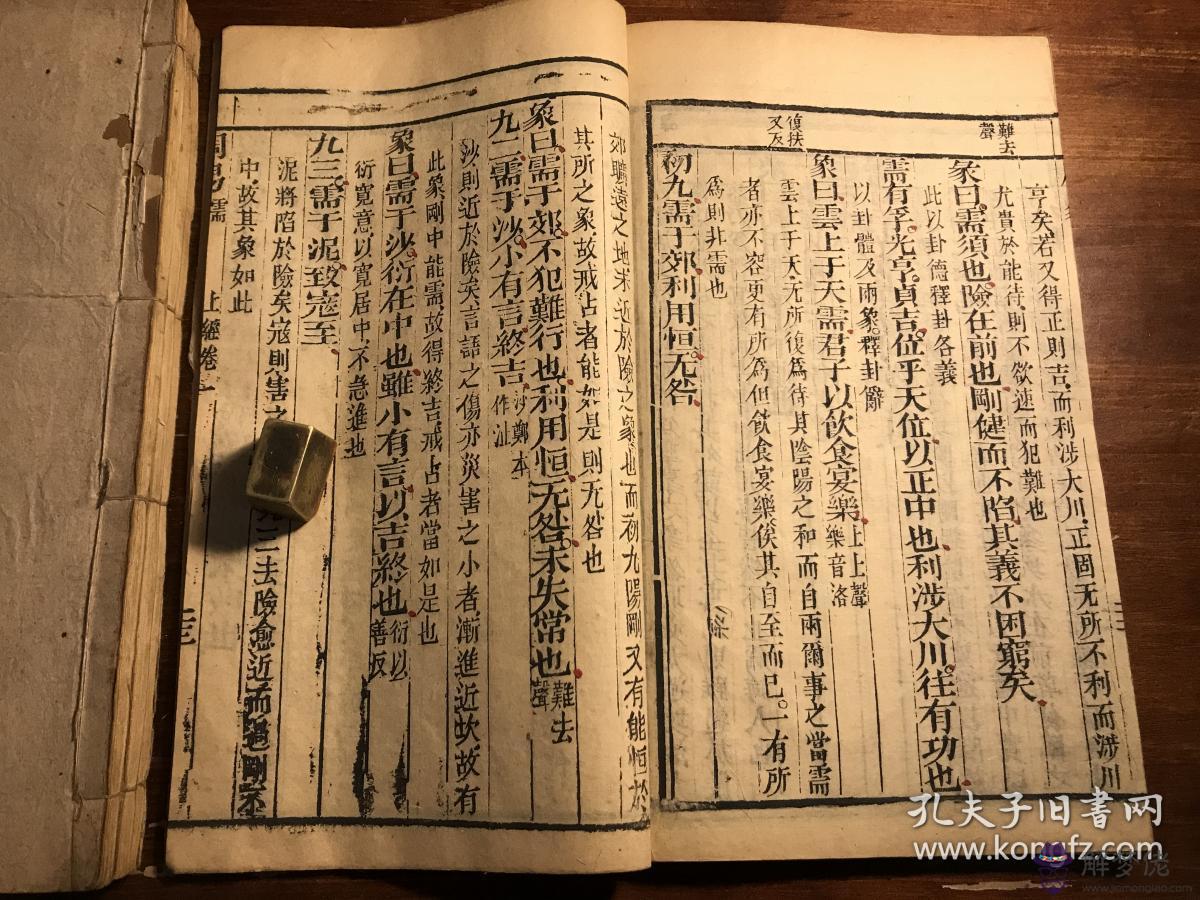 難去
聲
復扶
又反
亨矣、若又得正則吉、而利涉大川、正固无所不利而涉川
尤貴於能待、則不欲速而犯難也
彖曰、需須也、險在前也、剛健而不陷、其義不困窮矣
此以卦德釋卦名義
需有孚、光亨貞吉、位乎天位、以正中也、利涉大川、往有功也
以卦體及兩象、釋卦辭
象曰、雲上于天、需、君子以飲食宴樂、上上聲
樂音洛
雲上于天、无所復爲、待其陰陽之和而自雨爾、事之當需
者、亦不容更有所爲、但飲食宴樂、俟其自至而已。一有所
爲、則非需也
初九、需于郊、利用恒、无咎
郊、曠遠之地、未近於險之象也、而初九陽剛、又有能恒於
其所之象、故戒占者能如是、則无咎也
象曰、需于郊、不犯難行也、利用恒、无咎、未失常也難去
聲
九二、需于沙、小有言、終吉沙鄭本
作沚
沙則近於險矣、言語之傷、亦災害之小者、漸進近坎、故有
此象、剛中能需、故得終吉、戒占者當如是也
象曰、需于沙、衍在中也、雖小有言、以吉終也衍以
善反
衍、寬意、以寬居中、不急進也
九三、需于泥、致寇至
泥將陷於險矣、寇則害之
三去險愈近而過剛不
中、故其象如此
周易 需
上經卷一
孔夫子旧書网
www.kongfz.com
解梦佬
www.jiemonglao.com